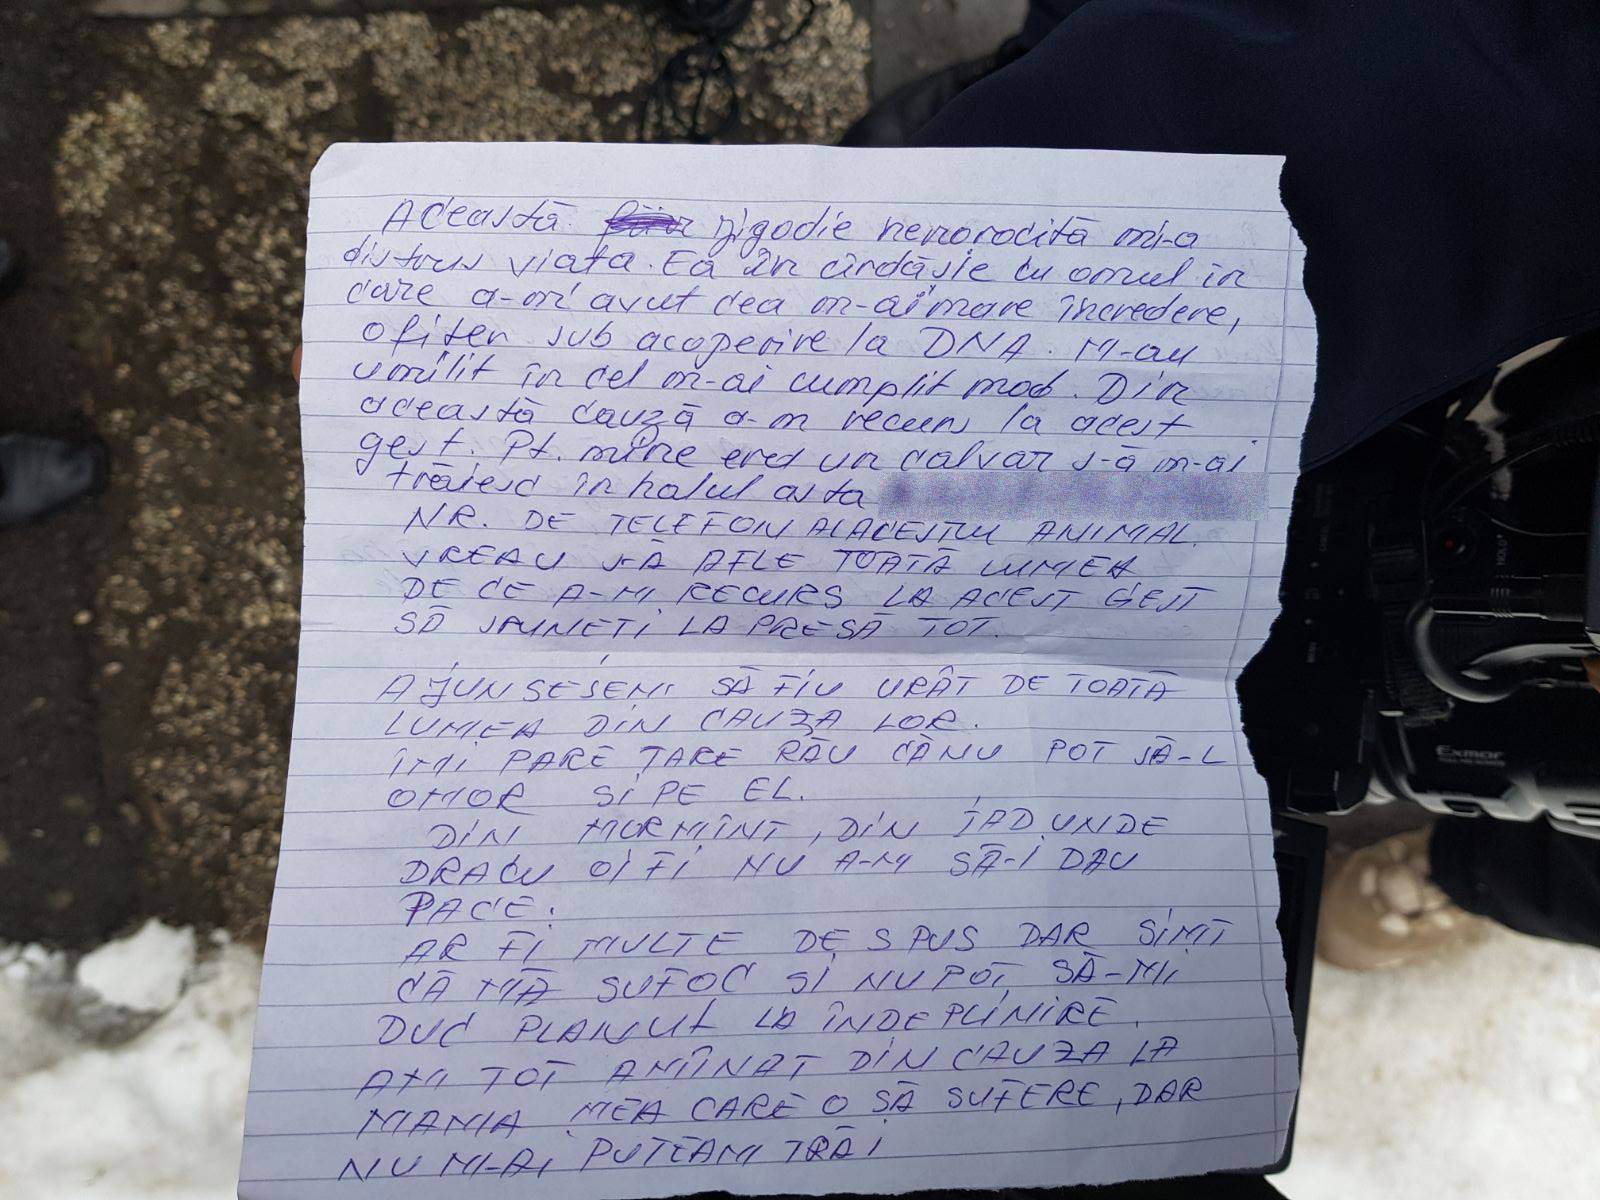 Această jigodie nenorocită mi-a
distrus viata. Ea în cîrdăsie cu omul în
care a-m avut cea m-ai mare încredere,
ofiter sub acoperire la DNA. M-au
umilit în cel m-ai cumplit mod. Din
această cauză a-m recurs la acest
gest. Pt. mine era un calvar s-ă m-ai
trăiesc în halul asta
NR. DE TELEFON AL ACESTUI ANIMAL.
VREAU S-Ă AFLE TOATĂ LUMEA
DE CE A-M RECURS LA ACEST GEST
SĂ SPUNETI LA PRESĂ TOT.
AJUNSESEM SĂ FIU URÂT DE TOATĂ
LUMEA DIN CAUZA LOR.
ÎMI PARE TARE RĂU CĂ NU POT SĂ-L
OMOR SI PE EL.
DIN MORMÎNT, DIN IAD UNDE
DRACU OI FI NU A-M SĂ-I DAU
PACE.
AR FI MULTE DE SPUS DAR SIMT
CĂ MĂ SUFOC SI NU POT SĂ-MI
DUC PLANUL LA ÎNDEPLINIRE.
AM TOT AMÎNAT DIN CAUZA LA
MAMA MEA CARE O SĂ SUFERE, DAR
NU M-AI PUTEAM TRĂI
Exmor
HOLD